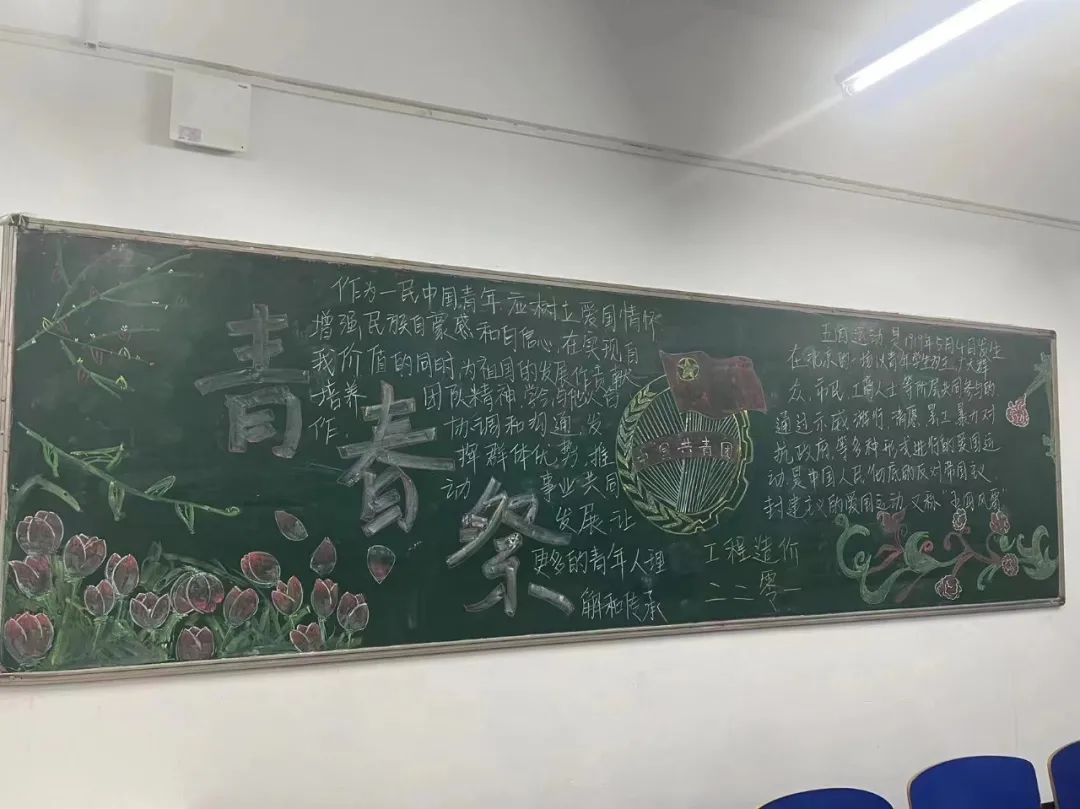 青春祭
作为一民中国青年,应树立爱国情怀
增强民族自豪感和自信心,在实现自
我价值的同时,为祖国的发展作贡献
培养 团队精神,学会与他人合
作, 协调和沟通,发
挥群体优势,推
动 事业共同
发展,让
更多的青年人理
解和传承
国共青团
工程造价
二二零一
五四运动是1919年5月4日发生
在北京的一场以青年学生为主,广大群
众、市民、工商人士等阶层共同参与的
通过示威游行、请愿、罢工、暴力对
抗政府,等多种形式进行的爱国运
动,是中国人民彻底的反对帝国主义、
封建主义的爱国运动,又称“五四风雷”